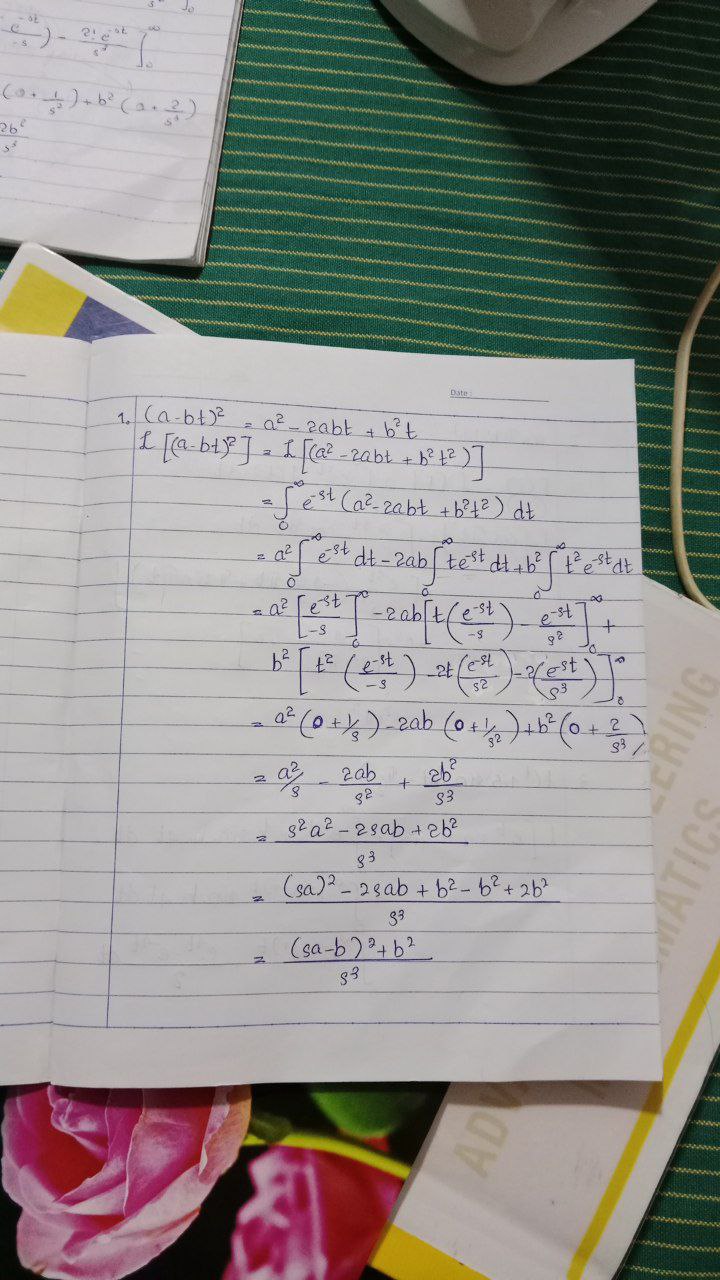 e^-st/-s) - 2! e^-st/s³ ]₀^∞
(0 + 1/s²) + b² (0 + 2/s³)
2b²/s³
Date :
1. (a-bt)² = a² - 2abt + b²t
L [(a-bt)²] = L [(a² - 2abt + b²t²)]
= ∫₀^∞ e^-st (a² - 2abt + b²t²) dt
= a² ∫₀^∞ e^-st dt - 2ab ∫₀^∞ te^-st dt + b² ∫₀^∞ t² e^-st dt
= a² [e^-st/-s]₀^∞ - 2ab [t (e^-st/-s) - e^-st/s²]₀^∞ +
b² [t² (e^-st/-s) - 2t (e^-st/s²) - 2 (e^-st/s³)]₀^∞
= a² (0 + 1/s) - 2ab (0 + 1/s²) + b² (0 + 2/s³)
= a²/s - 2ab/s² + 2b²/s³
= s²a² - 2sab + 2b² / s³
= (sa)² - 2sab + b² - b² + 2b² / s³
= (sa-b)² + b² / s³